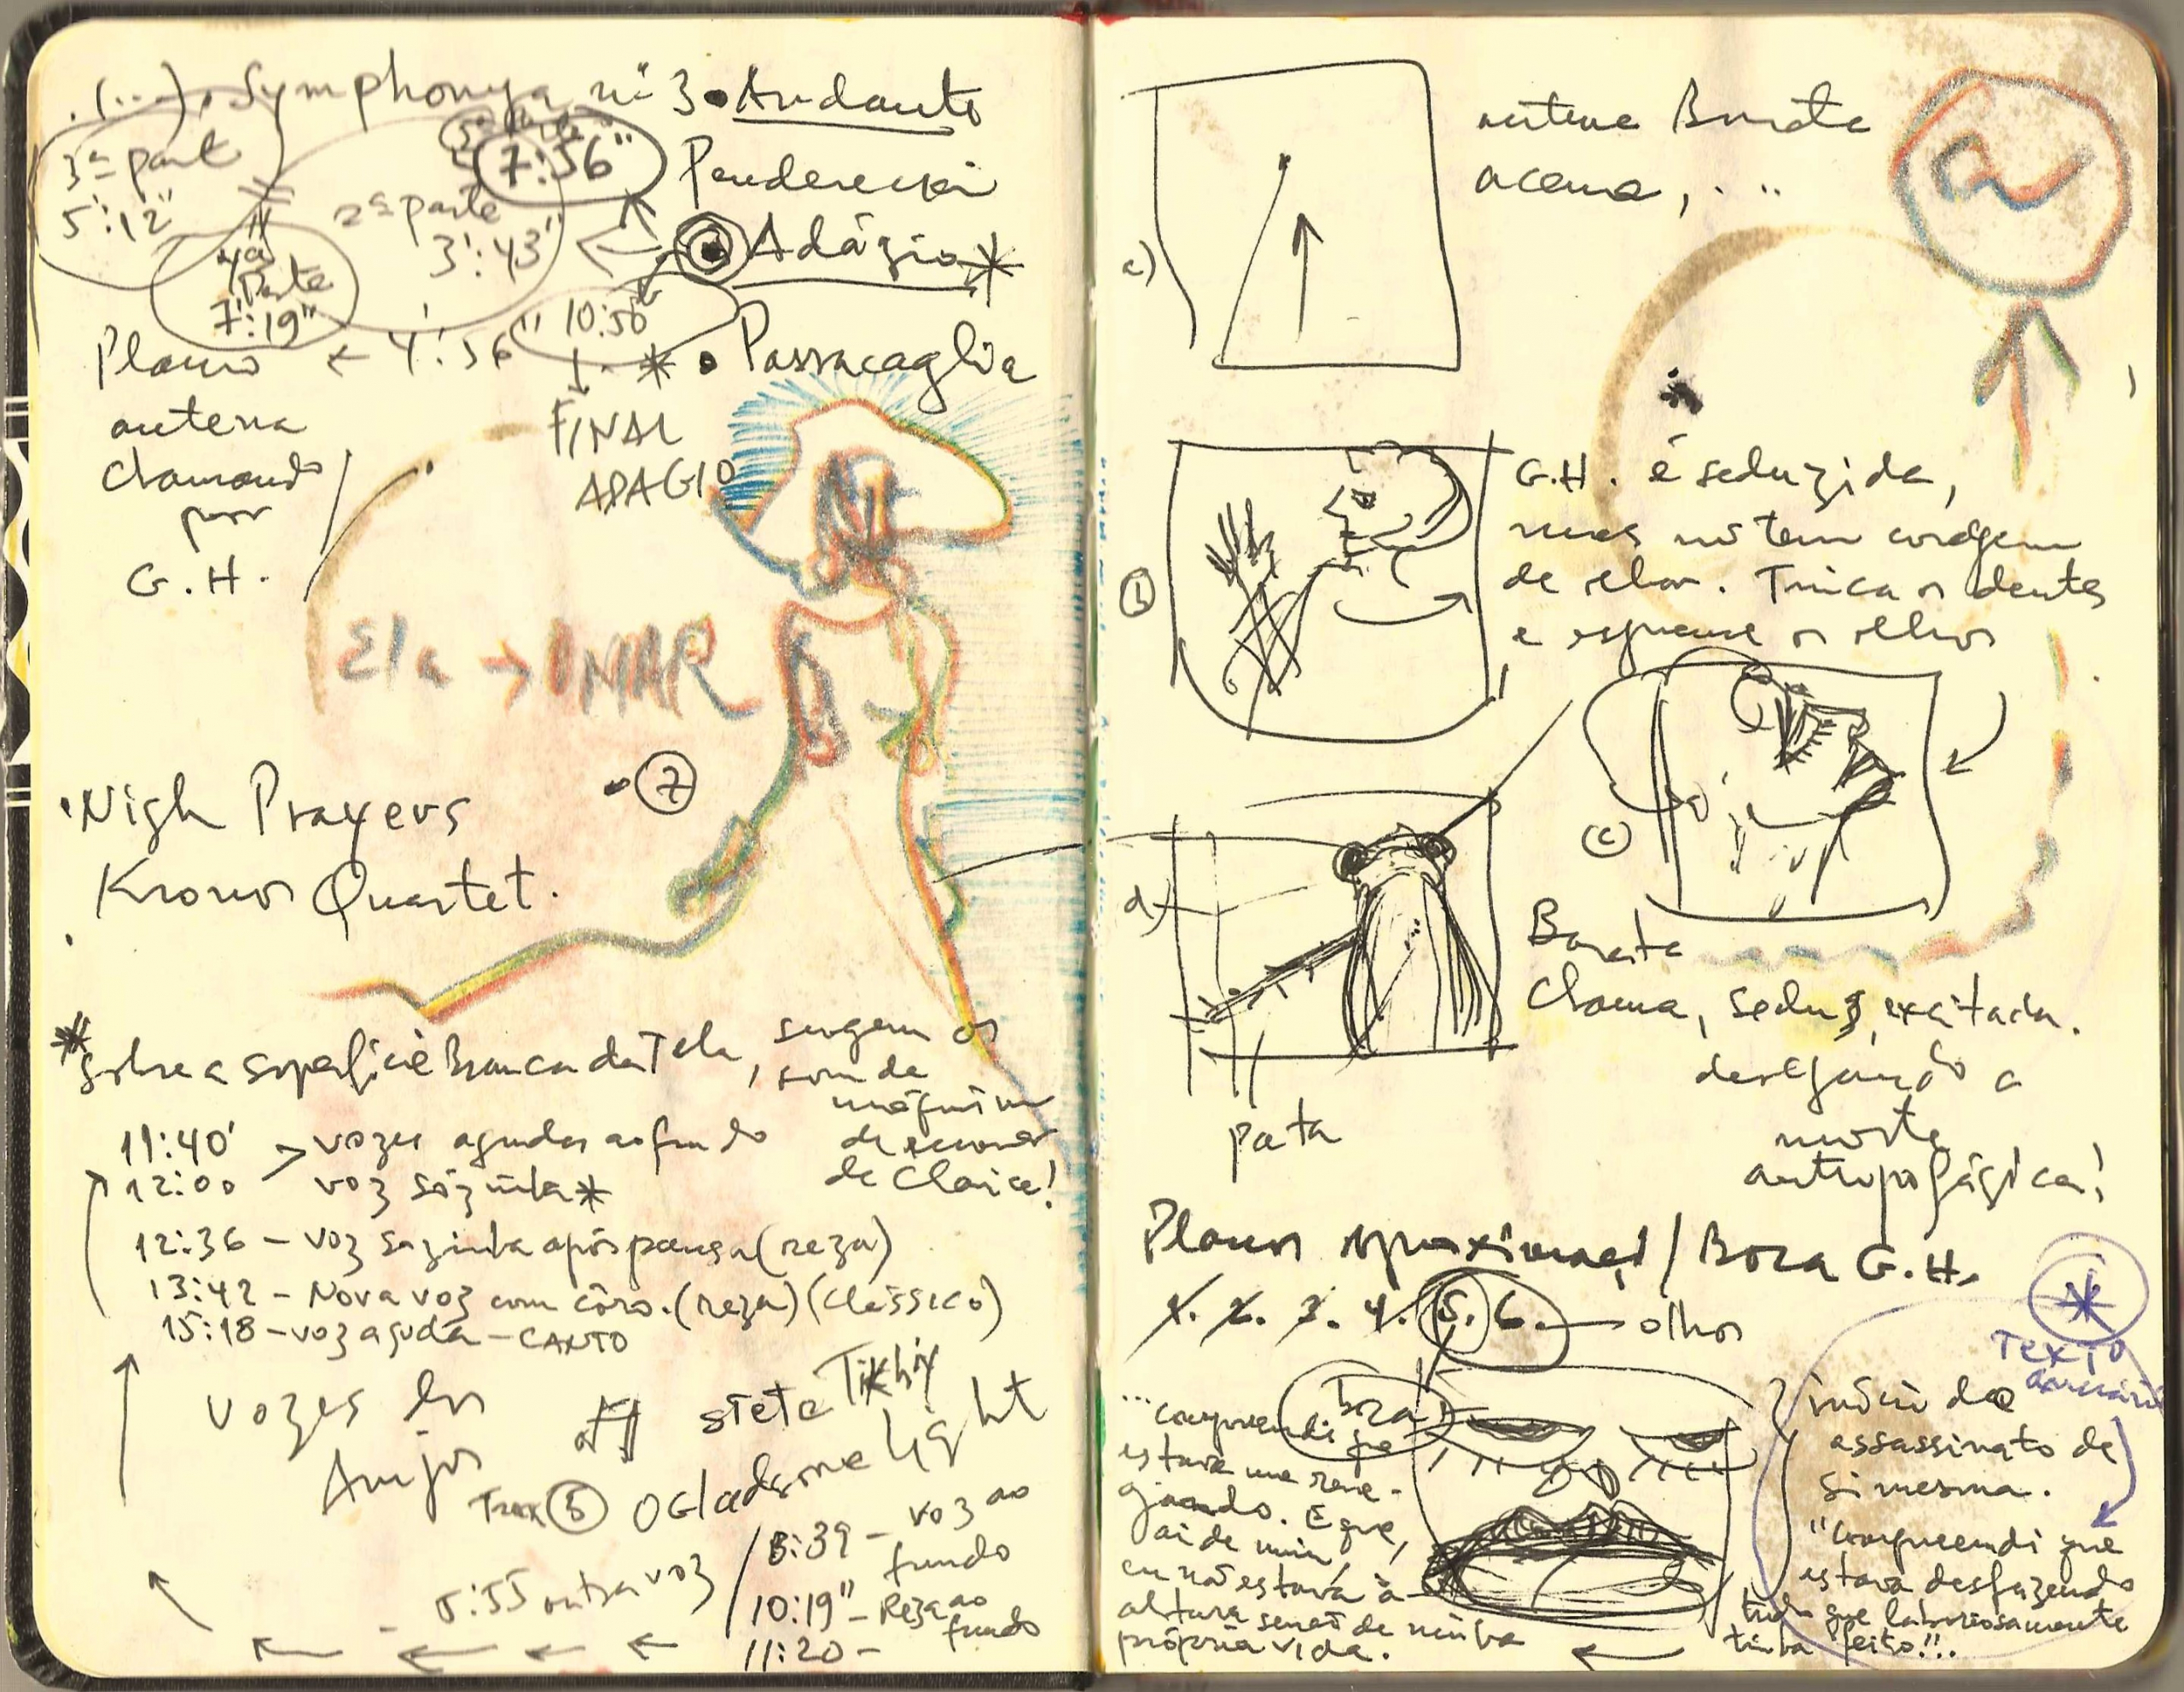 .(...). Symphonya nº 3 • Andante
3ª part
5':12"
7:56"
Penderecki
2ª parte
3':43"
• Adágio *
4ª
Parte
7':19"
Plano ← 4':56" 10:50
* • Passacaglia
antena
chamando
por
G.H.
FINAL
ADAGIO
Ela →
• 7
• Nigh Prayers
Kronos Quartet.
* Sobre a superfície Branca da Tela, surgem os
som de
máquina
de escrever
de Clarice!
11:40' > vozes agudas ao fundo
12:00 voz sózinha *
12:36 - voz sozinha após pausa (reza)
13:42 - Nova voz com côro. (reza) (clássico)
15:18 - voz aguda - CANTO
vozes dos
Anjos
Light
5
8:39 - voz ao
fundo
5:55 outra voz
10:19" - Reza ao
fundo
11:20 -
a)
antena Barata
acena, ...
b
G.H. é seduzida,
mas não tem coragem
de olhar. Trinca os dentes
e espreme os olhos
c
d)
Barata
Chama, seduz, excitada.
desejando a
morte
antropofágica!
pata
Planos aproximaç. / Boca G.H.
1. 2. 3. 4. 5. 6. — olhos
*
TEXTO
boca
...compreendi que
estava me rene-
gando. É que,
ai de mim,
eu não estava à
altura senão de minha
própria vida.
início do
assassinato de
si mesma.
"Compreendi que
estava desfazendo
tudo que laboriosamente
tinha feito!!.